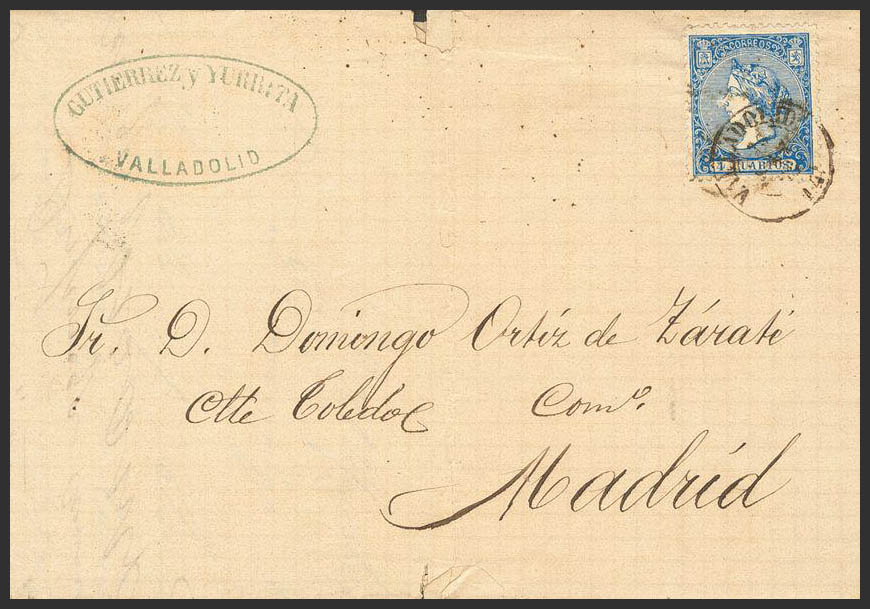 GUTIERREZ y YURRITA
VALLADOLID
CORREOS
4 CUARTOS
VALLADOLID
Sr. D. Domingo Ortíz de Zárati
Clle Toledo Como.
Madrid